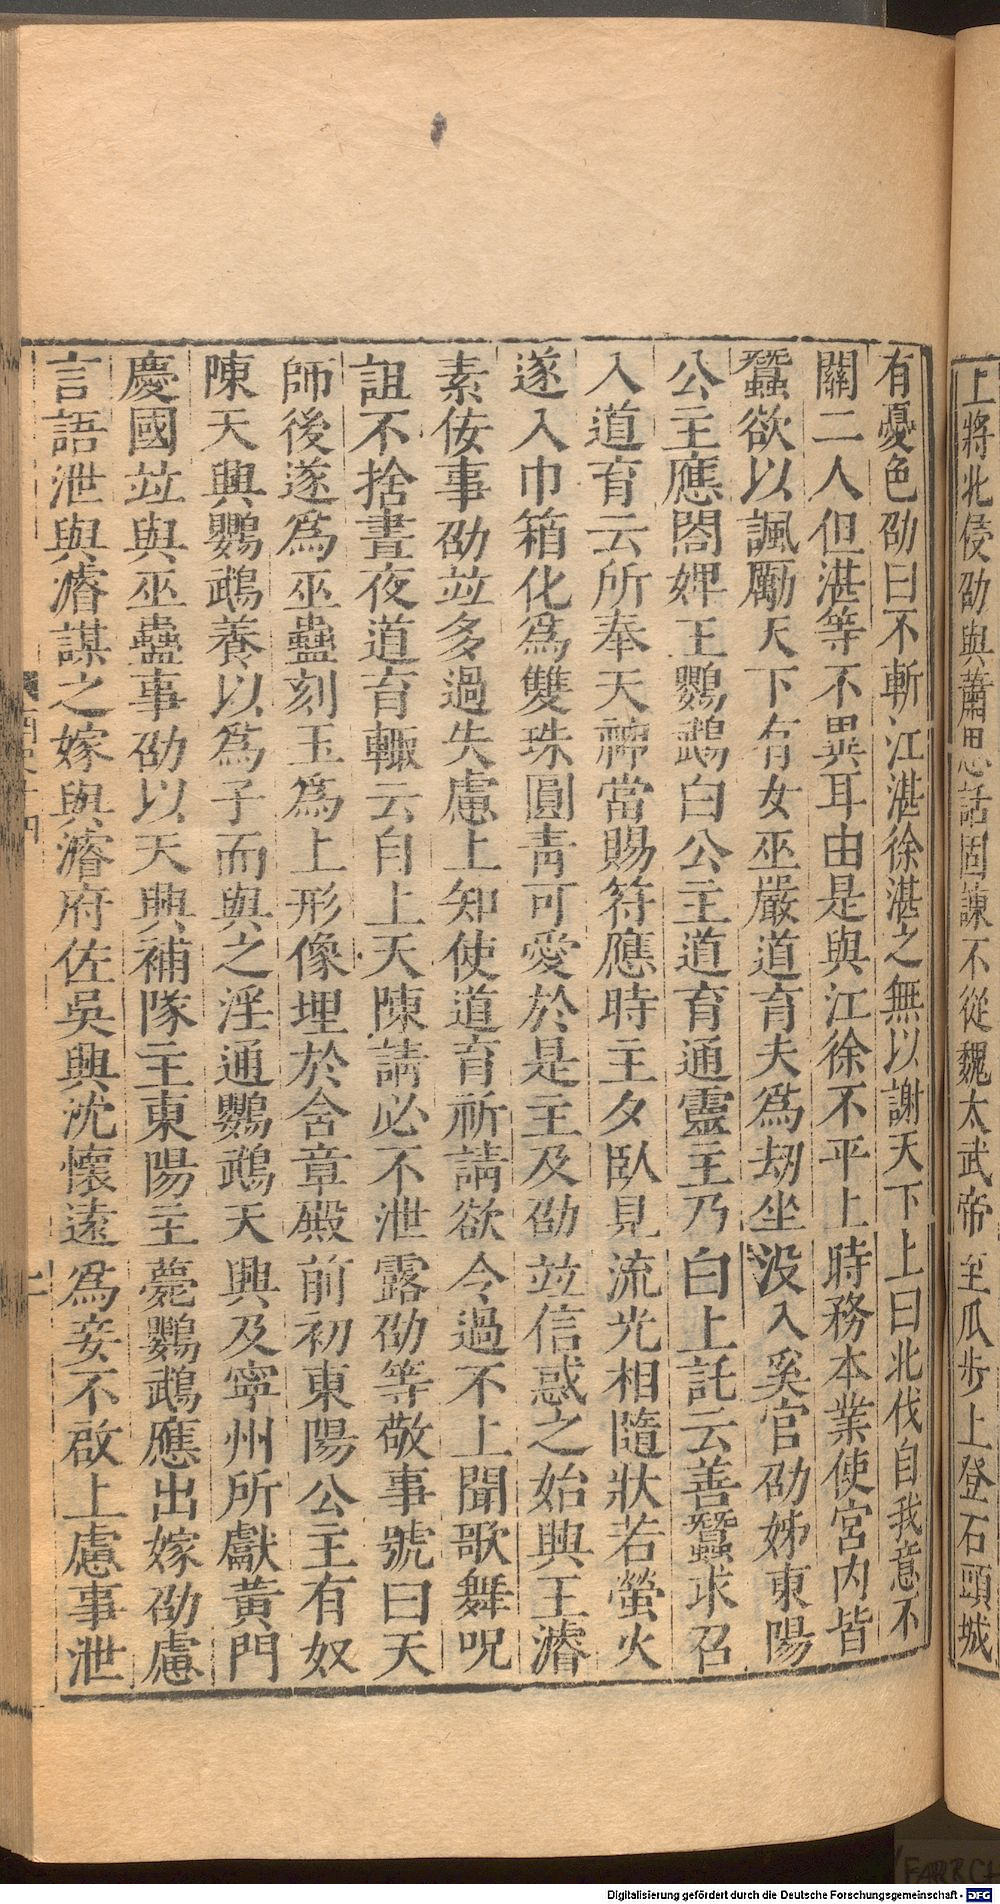 上將北侵劭與蕭思話固諫不從魏太武帝至瓜步上登石頭城
有憂色劭曰不斬江湛徐湛之無以謝天下上曰北伐自我意不
關二人但湛等不異耳由是與江徐不平上時務本業使宮内皆
蠶欲以諷勵天下有女巫嚴道育夫爲劫坐没入奚官劭姊東陽
公主應閤婢王鸚鵡白公主道育通靈主乃白上託云善蠶求召
入道育云所奉天神當賜符應時主夕臥見流光相隨狀若螢火
遂入巾箱化爲雙珠圓青可愛於是主及劭竝信惑之始興王濬
素佞事劭竝多過失慮上知使道育祈請欲令過不上聞歌舞呪
詛不捨晝夜道育輙云自上天陳請必不泄露劭等敬事號曰天
師後遂爲巫蠱刻玉爲上形像埋於含章殿前初東陽公主有奴
陳天興鸚鵡養以爲子而與之淫通鸚鵡天興及寧州所獻黄門
慶國竝與巫蠱事劭以天興補隊主東陽主薨鸚鵡應出嫁劭慮
言語泄與濬謀之嫁與濬府佐吳興沈懷遠爲妾不啟上慮事泄
Digitalisierung gefördert durch die Deutsche Forschungsgemeinschaft - DFG